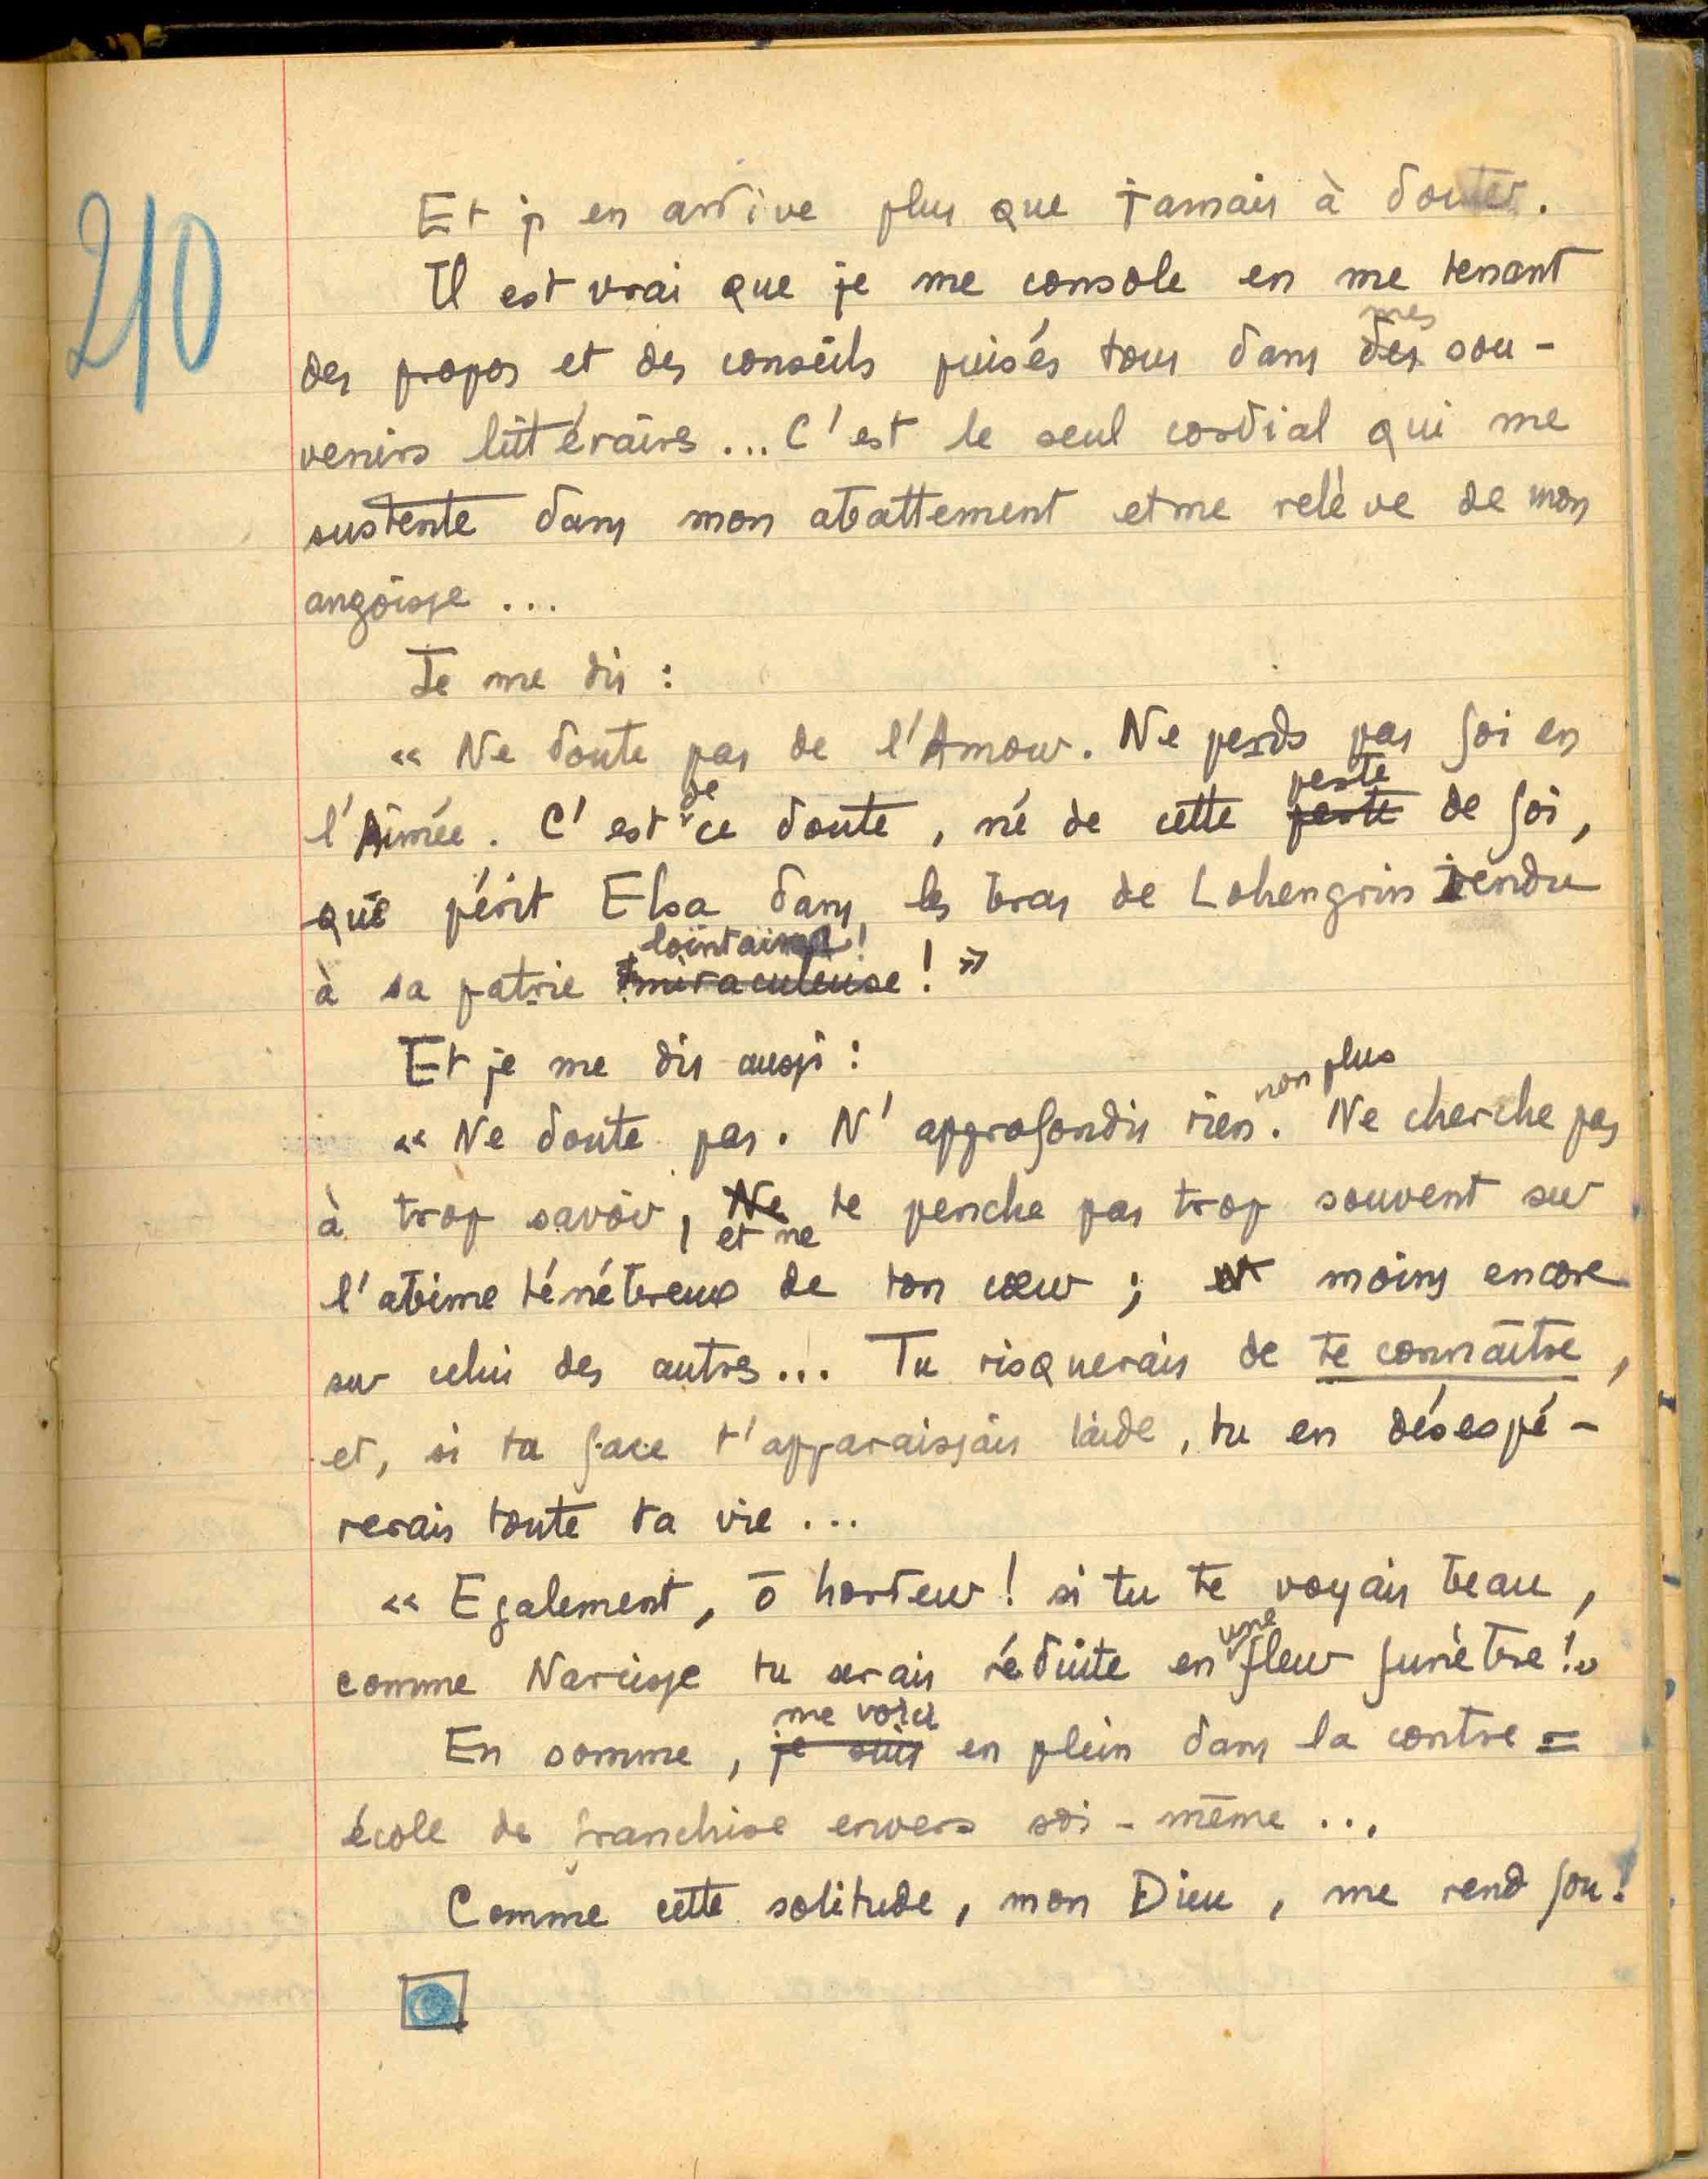 210
Et j'en arrive plus que jamais à douter.
Il est vrai que je me console en me tenant
des propos et des conseils puisés tous dans des mes sou-
venirs littéraires... C'est le seul cordial qui me
sustente dans mon abattement et me relève de mon
angoisse ...
Je me dis :
« Ne doute pas de l'Amour. Ne perds pas foi en
l'Aimée. C'est de ce doute, né de cette perte de foi,
que périt Elsa dans les bras de Lohengrin rendu
à sa patrie miraculeuse lointaine ! »
Et je me dis aussi :
« Ne doute pas. N'approfondis rien non plus. Ne cherche pas
à trop savoir, Ne et ne te penche pas trop souvent sur
l'abîme ténébreux de ton cœur ; et moins encore
sur celui des autres... Tu risquerais de te connaître,
et, si ta face t'apparaissais laide, tu en désespé-
rerais toute ta vie ...
« Egalement, ô horreur ! si tu te voyais beau,
comme Narcisse tu serais réduite en une fleur funèbre ! »
En somme, je suis me voici en plein dans la contre=
école de franchise envers soi-même ...
Comme cette solitude, mon Dieu, me rend fou !